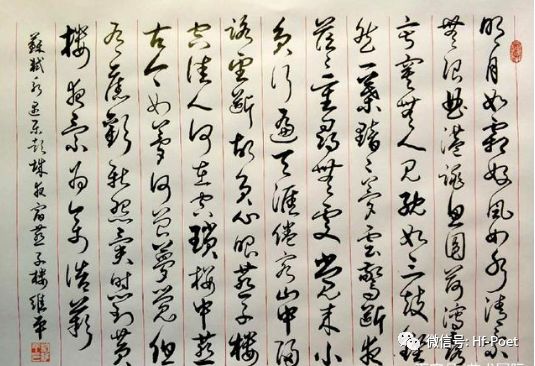 明月如霜好風如水清景
無限曲港跳魚圓荷瀉露
寂寞無人見紞如三鼓鏗
然一葉黯黯夢雲驚斷夜
茫茫重尋無處覺來小
園行遍天涯倦客山中歸
路望斷故園心眼燕子樓
空佳人何在空鎖樓中燕
古今如夢何曾夢覺但
有舊歡新怨異時對黃
樓夜景為余浩嘆
蘇軾永遇樂彭城夜宿燕子樓
微信号: Hf-Poet